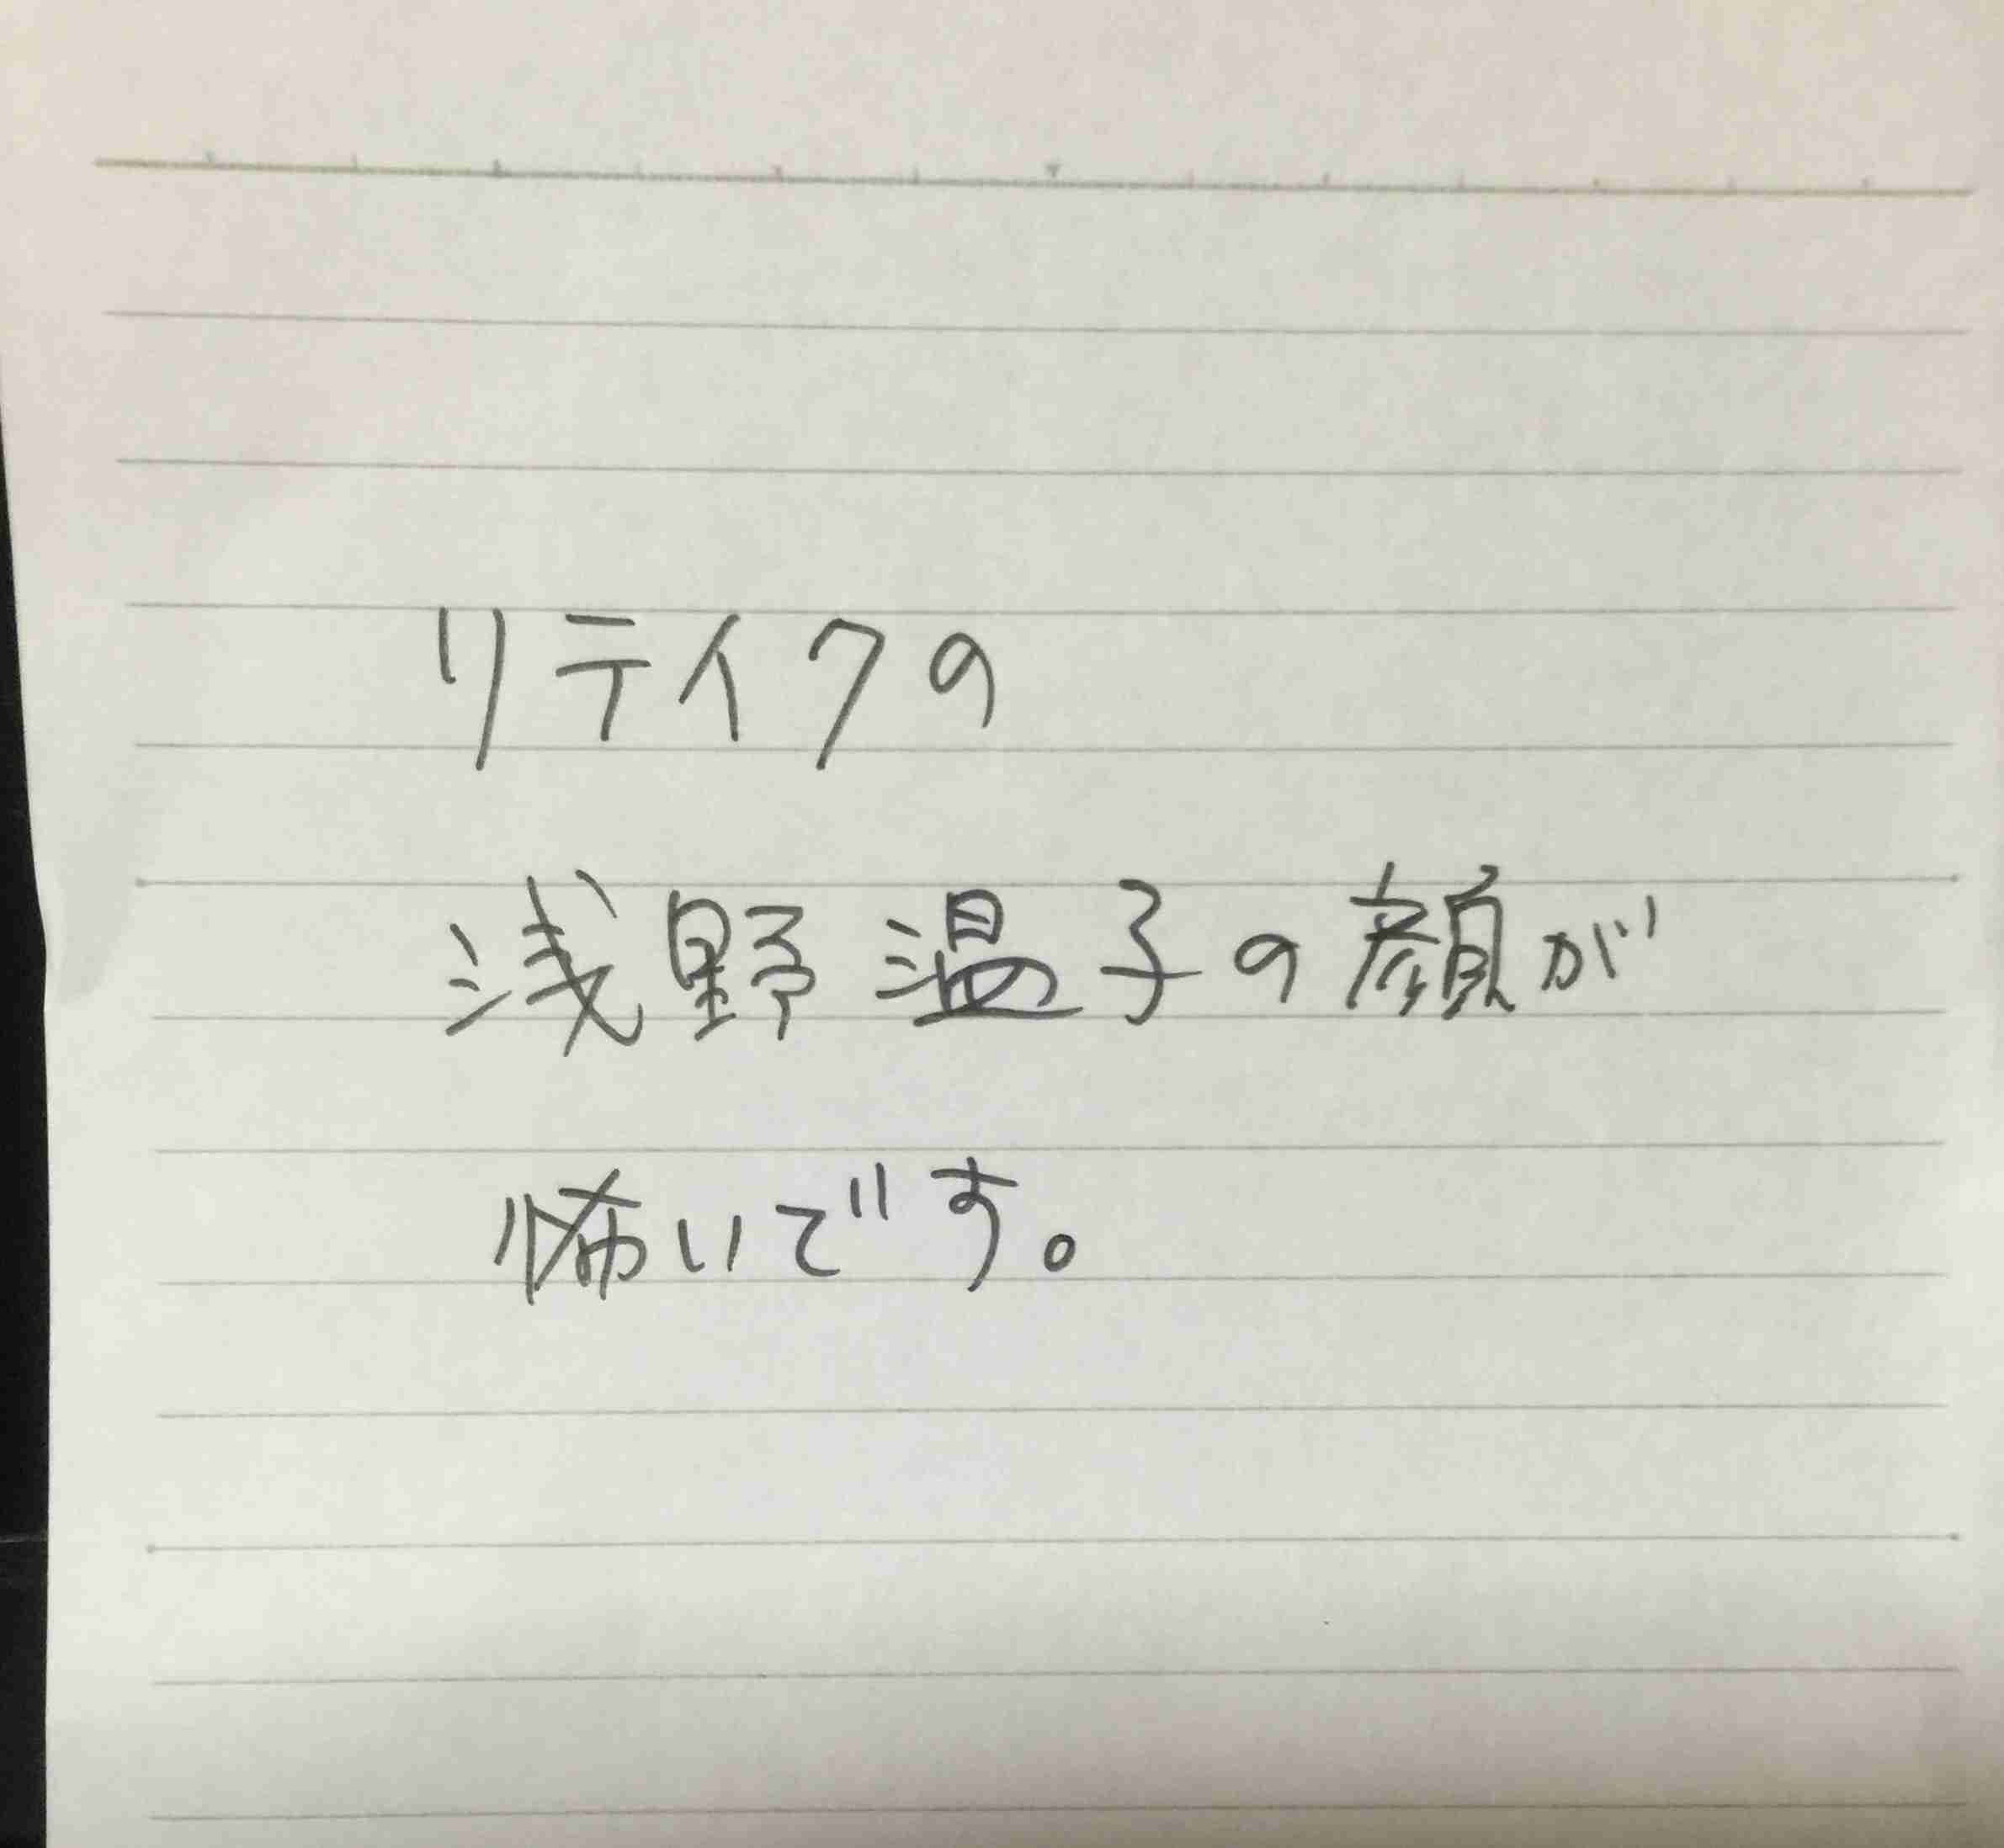 リテイクの
浅野温子の顔が
怖いです。